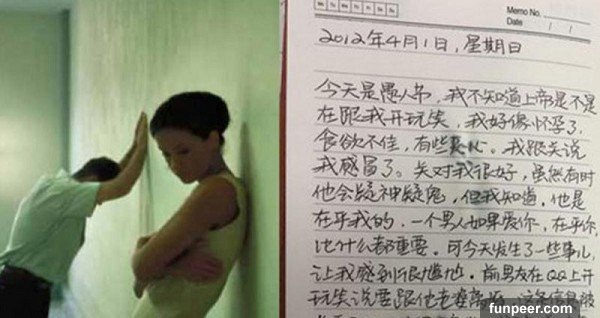 Memo No.
Date / /
2012年4月1日，星期日
今天是愚人节，我不知道上帝是不是
在跟我开玩笑，我好像怀孕了，
食欲不佳，有些恶心。我跟关说
我感冒了。关对我很好，虽然有时
他会疑神疑鬼，但我知道，他是
在乎我的，一个男人如果爱你，在乎你，
比什么都重要。可今天发生了一些事儿，
让我感到很尴尬。前男友在QQ上开
玩笑说要跟他老婆
funpeer.com